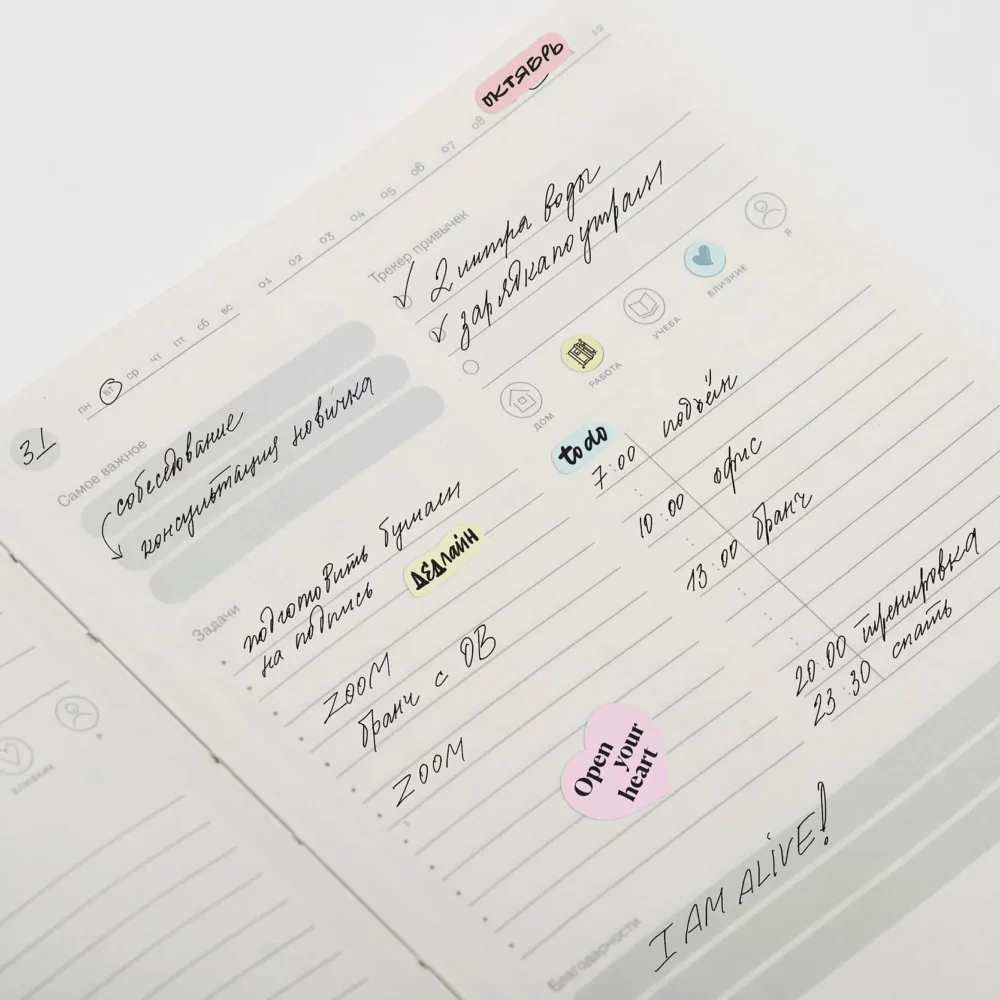 31
пн вт ср чт пт сб вс 01 02 03 04 05 06 07 08 ОКТЯБРЬ 12
Самое важное
собеседование
консультация новичка
Трекер привычек
2 литра воды
зарядка по утрам
ДОМ
РАБОТА
УЧЕБА
БЛИЗКИЕ
Я
Задачи
подготовить бумаги
на подпись
ДЕДЛАЙН
ZOOM
бранч с ОВ
ZOOM
to do
7:00 подъём
10:00 офис
13:00 бранч
20:00 тренировка
23:30 спать
Open
your
heart
Благодарности
I AM ALIVE!
БЛИЗКИЕ
Я